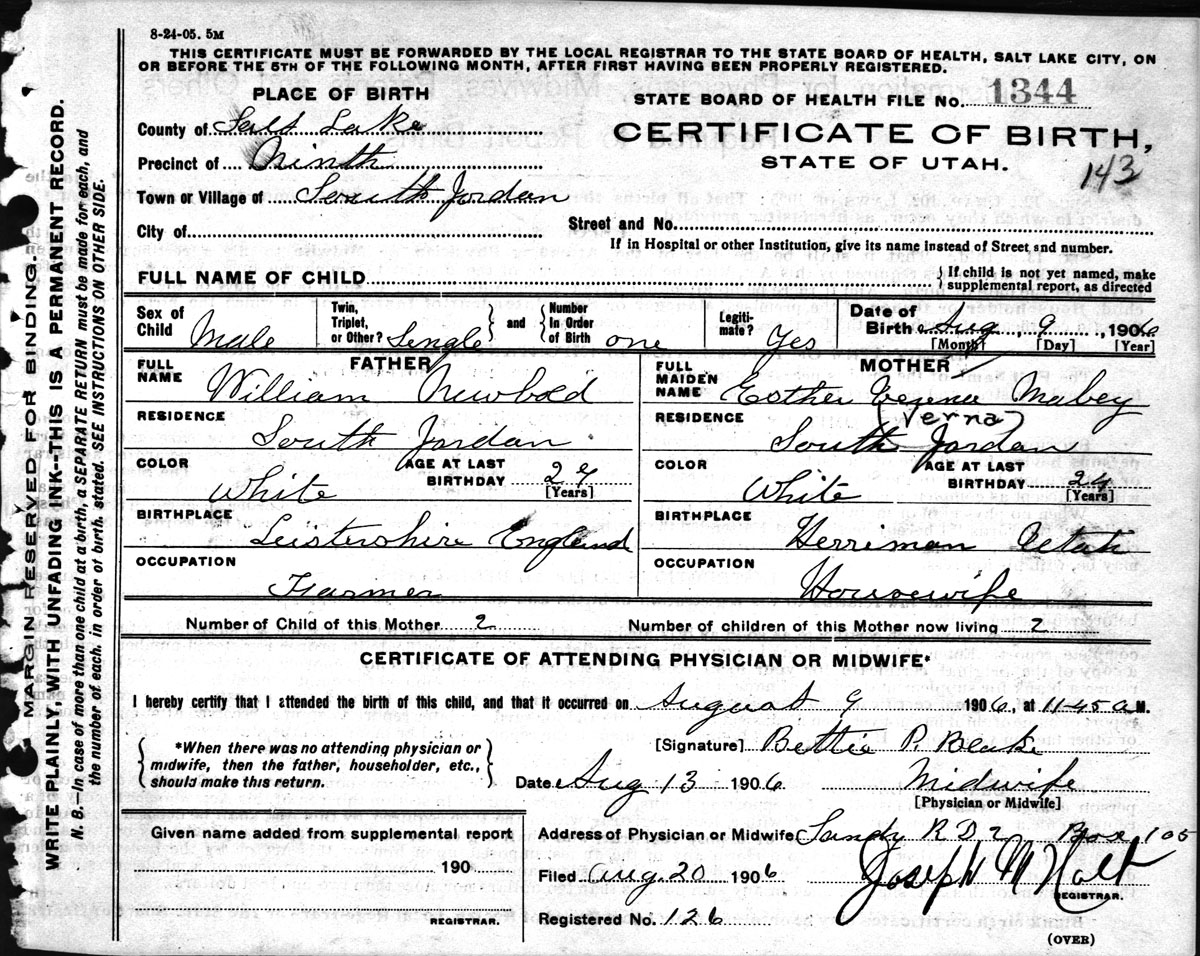 8-24-05. 5M
THIS CERTIFICATE MUST BE FORWARDED BY THE LOCAL REGISTRAR TO THE STATE BOARD OF HEALTH, SALT LAKE CITY, ON
OR BEFORE THE 5TH OF THE FOLLOWING MONTH, AFTER FIRST HAVING BEEN PROPERLY REGISTERED.
PLACE OF BIRTH
County of Salt Lake
Precinct of Ninth
Town or Village of South Jordan
City of
STATE BOARD OF HEALTH FILE NO. 1344
CERTIFICATE OF BIRTH,
STATE OF UTAH.
143
Street and No.
If in Hospital or other Institution, give its name instead of Street and number.
FULL NAME OF CHILD
If child is not yet named, make
supplemental report, as directed
Sex of Child Male
Twin, Triplet, or Other? Single
and
Number In Order of Birth one
Legitimate? Yes
Date of Birth Aug 9, 1906
[Month] [Day] [Year]
FATHER
FULL NAME William Newbold
RESIDENCE South Jordan
COLOR White
AGE AT LAST BIRTHDAY
[Years]
BIRTHPLACE Leistershire England
OCCUPATION Farmer
MOTHER
FULL MAIDEN NAME Esther Verena Mabey
(Verna)
RESIDENCE South Jordan
COLOR White
AGE AT LAST BIRTHDAY 24
[Years]
BIRTHPLACE Herriman Utah
OCCUPATION Housewife
Number of Child of this Mother 2
Number of children of this Mother now living 2
CERTIFICATE OF ATTENDING PHYSICIAN OR MIDWIFE*
I hereby certify that I attended the birth of this child, and that it occurred on August 9 1906, at 11-45 a.M.
*When there was no attending physician or
midwife, then the father, householder, etc.,
should make this return.
[Signature] Bettie P. Blake
Date Aug 13 1906
Midwife
[Physician or Midwife]
Given name added from supplemental report
190
REGISTRAR.
Address of Physician or Midwife Sandy R D 2 Box 105
Filed Aug 20 1906
Joseph M Holt
REGISTRAR.
Registered No. 126
(OVER)
MARGIN RESERVED FOR BINDING.
WRITE PLAINLY, WITH UNFADING INK--THIS IS A PERMANENT RECORD.
N. B.—In case of more than one child at a birth, a SEPARATE RETURN must be made for each, and
the number of each, in order of birth, stated. SEE INSTRUCTIONS ON OTHER SIDE.